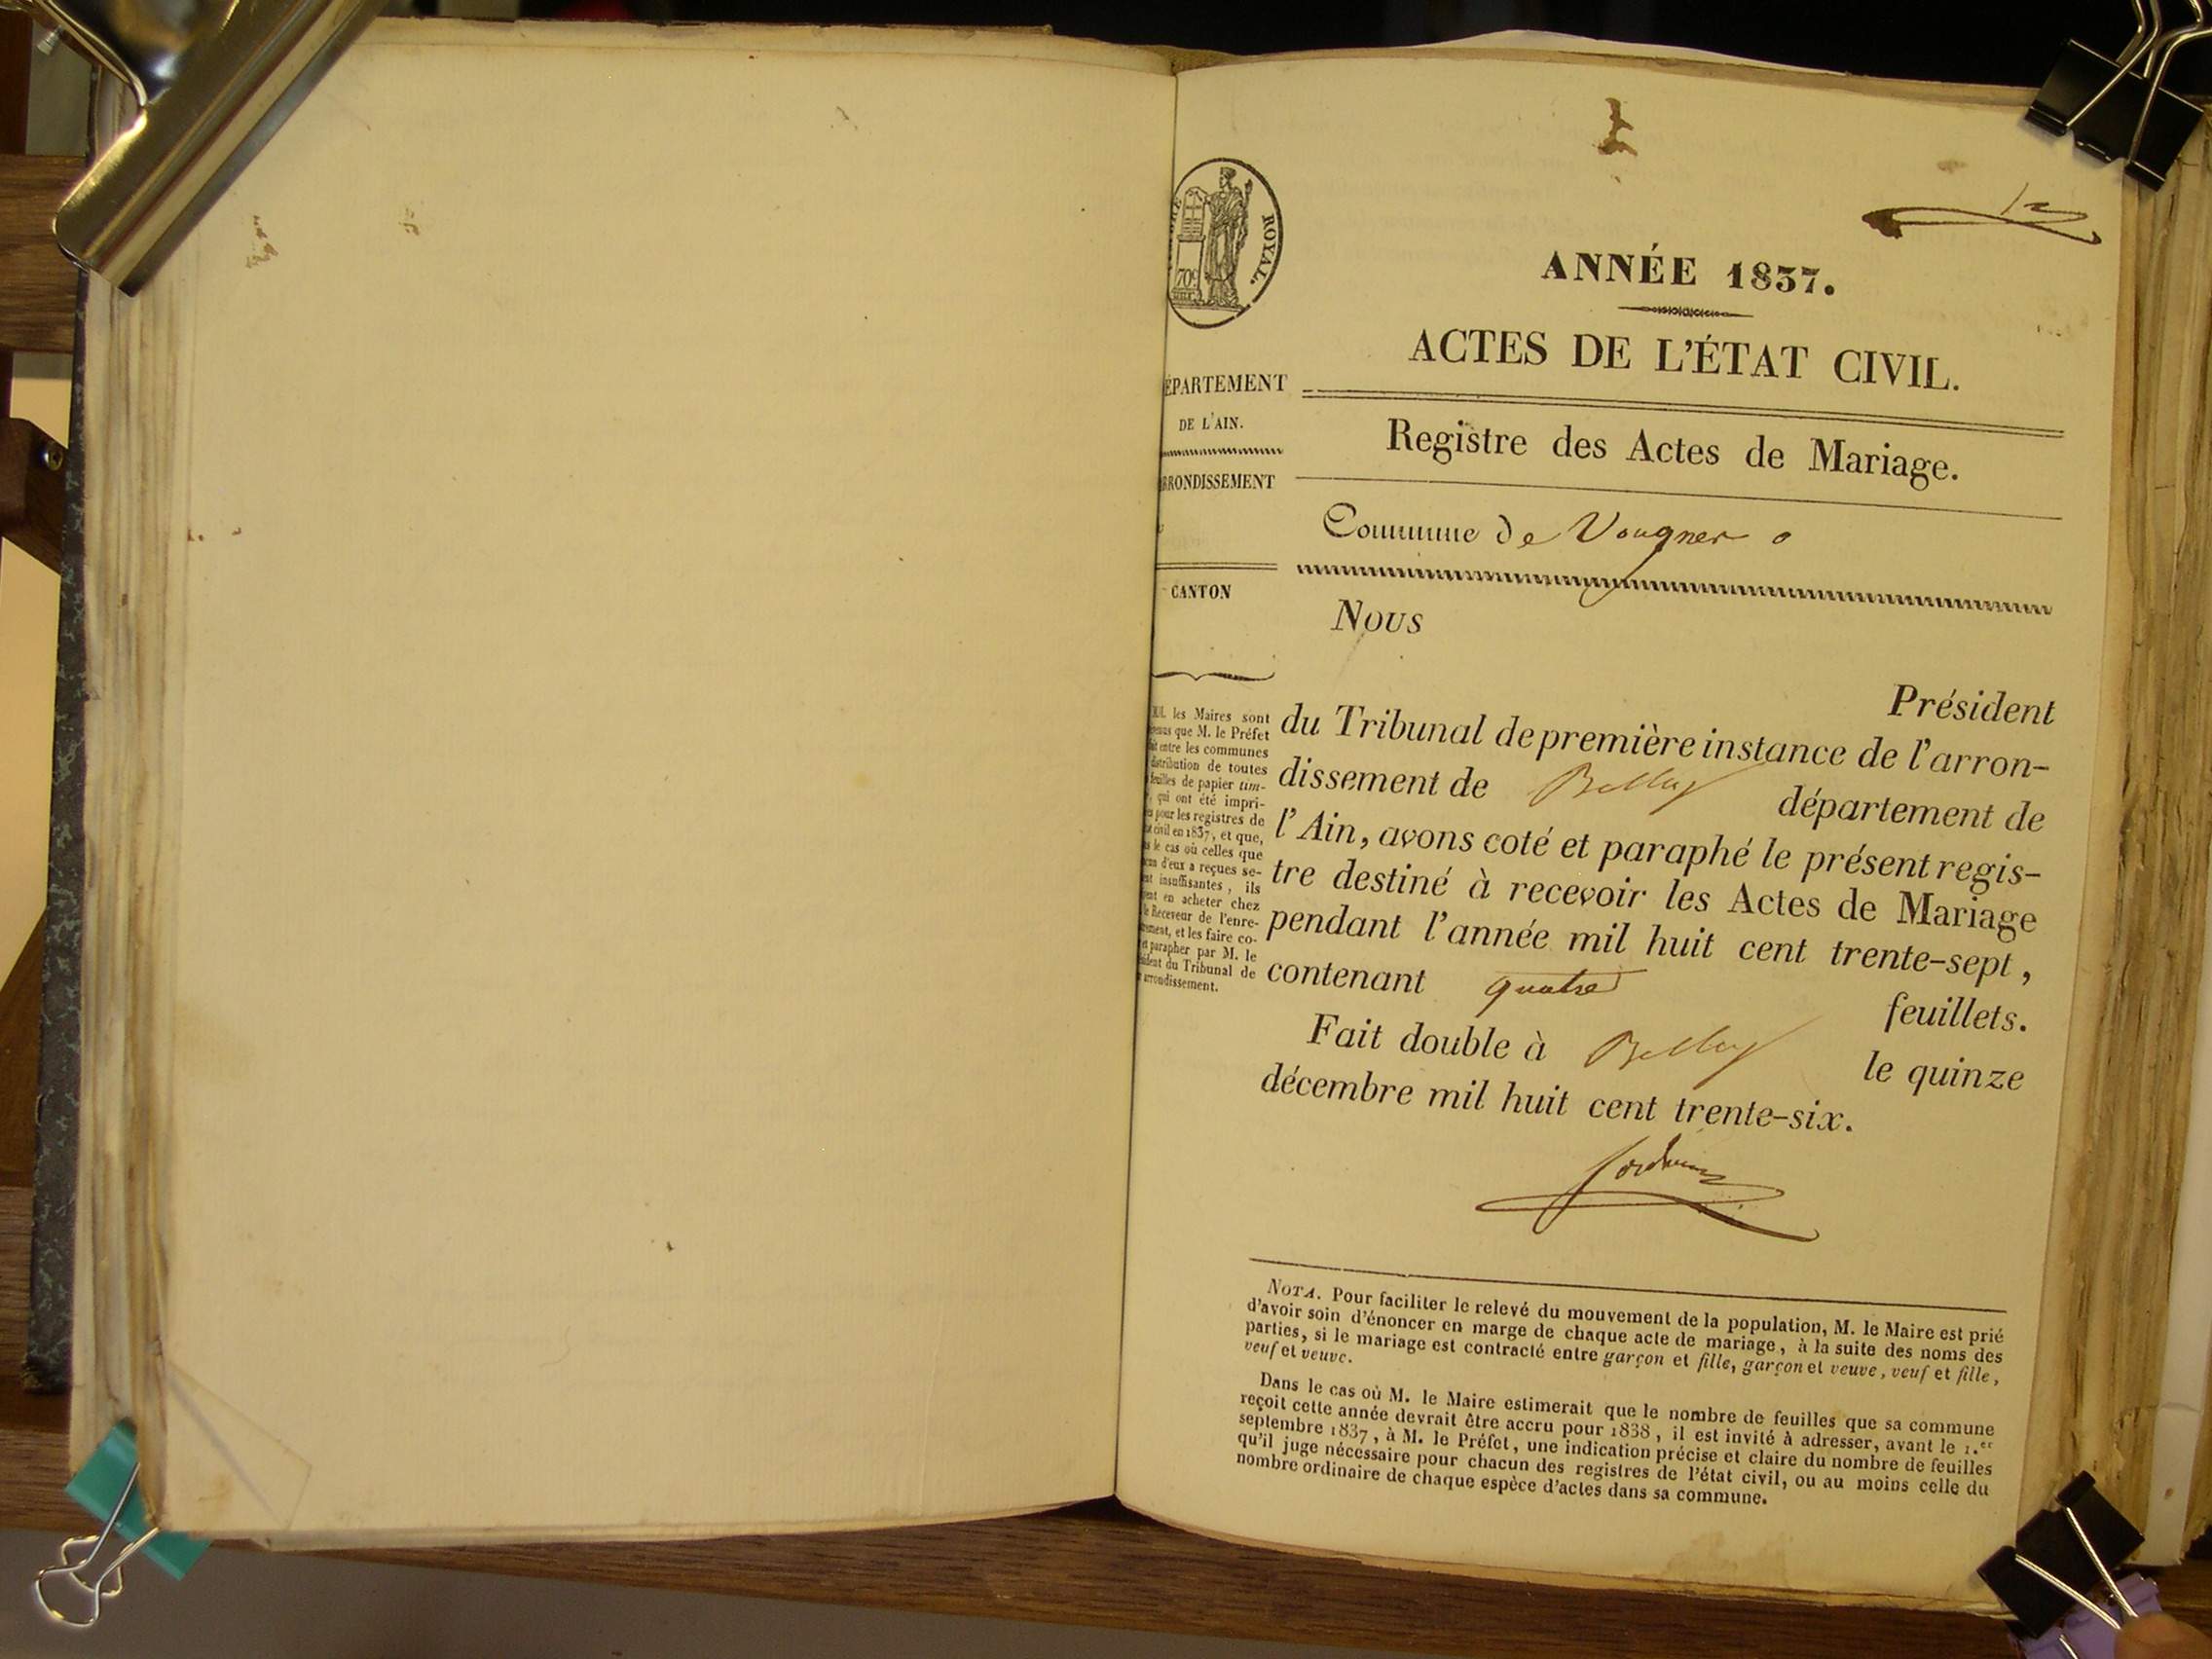 ROYAL.
70c
ANNÉE 1837.
ACTES DE L'ÉTAT CIVIL.
ÉPARTEMENT
DE L'AIN.
Registre des Actes de Mariage.
RRONDISSEMENT
Commune de Vougnes
CANTON
Nous
Président
du Tribunal de première instance de l'arron-
dissement de Belley département de
l'Ain, avons coté et paraphé le présent regis-
tre destiné à recevoir les Actes de Mariage
pendant l'année mil huit cent trente-sept,
contenant quatre feuillets.
Fait double à Belley le quinze
décembre mil huit cent trente-six.
MM. les Maires sont
venus que M. le Préfet
ait entre les communes
distribution de toutes
feuilles de papier tim-
, qui ont été impri-
es pour les registres de
at civil en 1837, et que,
s le cas où celles que
cun d'eux a reçues se-
ent insuffisantes, ils
vent en acheter chez
le Receveur de l'enre-
rement, et les faire co-
et parapher par M. le
sident du Tribunal de
arrondissement.
NOTA. Pour faciliter le relevé du mouvement de la population, M. le Maire est prié
d'avoir soin d'énoncer en marge de chaque acte de mariage, à la suite des noms des
parties, si le mariage est contracté entre garçon et fille, garçon et veuve, veuf et fille,
veuf et veuve.
Dans le cas où M. le Maire estimerait que le nombre de feuilles que sa commune
reçoit cette année devrait être accru pour 1838, il est invité à adresser, avant le 1.er
septembre 1837, à M. le Préfet, une indication précise et claire du nombre de feuilles
qu'il juge nécessaire pour chacun des registres de l'état civil, ou au moins celle du
nombre ordinaire de chaque espèce d'actes dans sa commune.